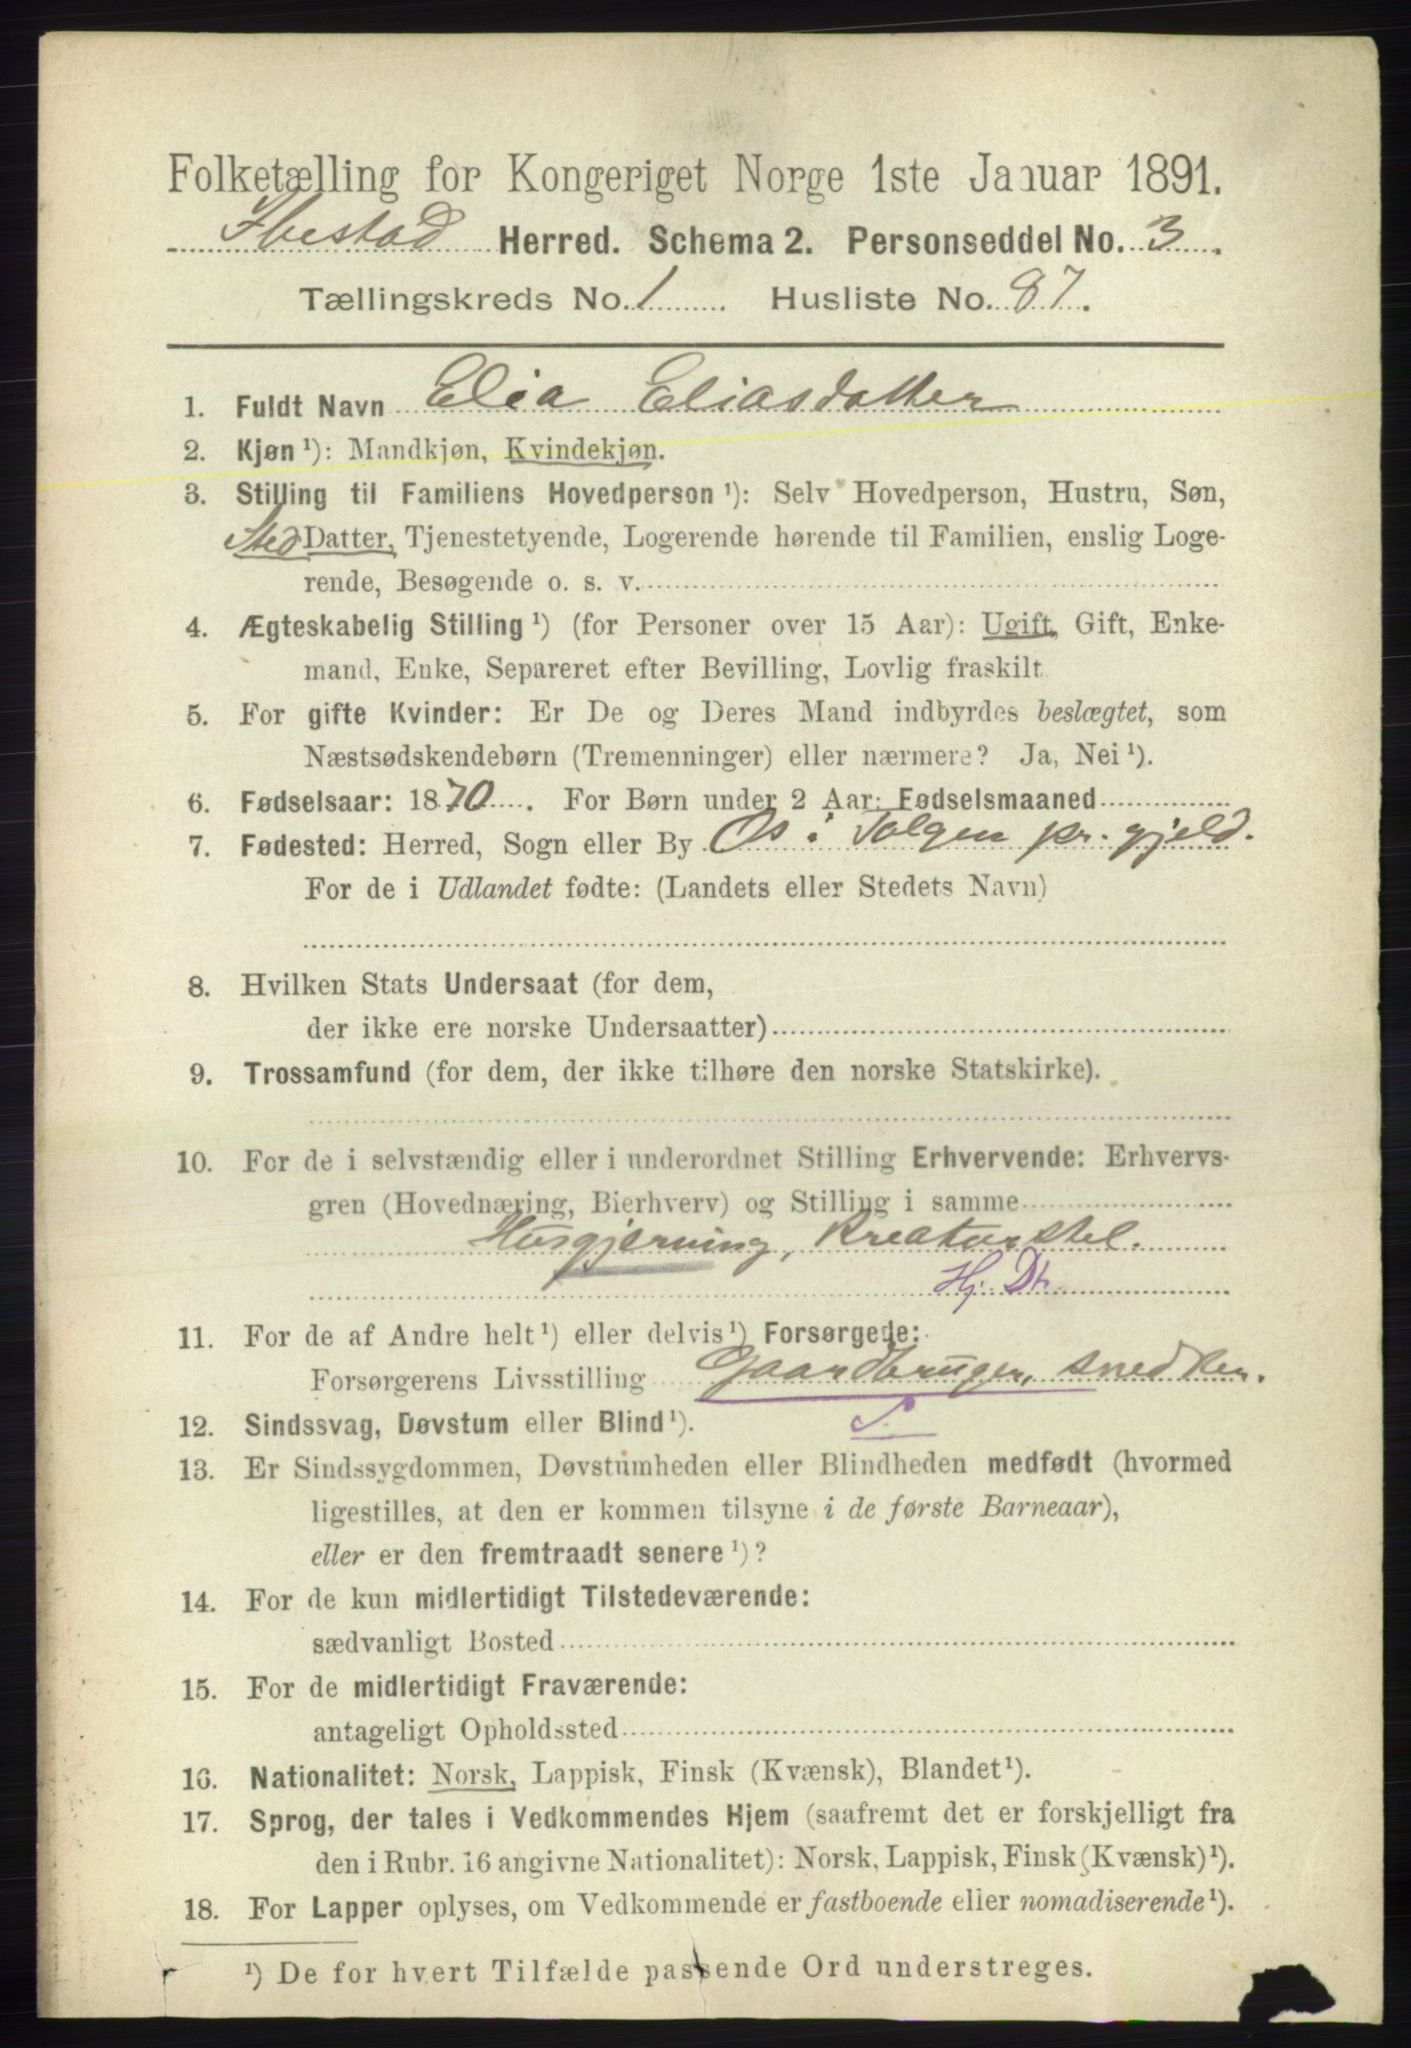 Folketælling for Kongeriget Norge 1ste Januar 1891.
Ibestad Herred. Schema 2. Personseddel No. 3.
Tællingskreds No. 1 Husliste No. 87.
1. Fuldt Navn Elia Eliasdatter
2. Kjøn ¹): Mandkjøn, Kvindekjøn.
3. Stilling til Familiens Hovedperson ¹): Selv Hovedperson, Hustru, Søn,
Sted Datter, Tjenestetyende, Logerende hørende til Familien, enslig Loge-
rende, Besøgende o. s. v.
4. Ægteskabelig Stilling ¹) (for Personer over 15 Aar): Ugift, Gift, Enke-
mand, Enke, Separeret efter Bevilling, Lovlig fraskilt
5. For gifte Kvinder: Er De og Deres Mand indbyrdes beslægtet, som
Næstsødskendebørn (Tremenninger) eller nærmere? Ja, Nei ¹).
6. Fødselsaar: 1870. For Børn under 2 Aar: Fødselsmaaned
7. Fødested: Herred, Sogn eller By Os i Tolgen pr. gjeld.
For de i Udlandet fødte: (Landets eller Stedets Navn)
8. Hvilken Stats Undersaat (for dem,
der ikke ere norske Undersaatter)
9. Trossamfund (for dem, der ikke tilhøre den norske Statskirke).
10. For de i selvstændig eller i underordnet Stilling Erhvervende: Erhvervs-
gren (Hovednæring, Bierhverv) og Stilling i samme
Husgjerning, Kreaturstel.
Hj. Dt.
11. For de af Andre helt ¹) eller delvis ¹) Forsørgede:
Forsørgerens Livsstilling Gaardbruger, snedker.
12. Sindssvag, Døvstum eller Blind ¹). S.
13. Er Sindssygdommen, Døvstumheden eller Blindheden medfødt (hvormed
ligestilles, at den er kommen tilsyne i de første Barneaar),
eller er den fremtraadt senere ¹)?
14. For de kun midlertidigt Tilstedeværende:
sædvanligt Bosted
15. For de midlertidigt Fraværende:
antageligt Opholdssted
16. Nationalitet: Norsk, Lappisk, Finsk (Kvænsk), Blandet ¹).
17. Sprog, der tales i Vedkommendes Hjem (saafremt det er forskjelligt fra
den i Rubr. 16 angivne Nationalitet): Norsk, Lappisk, Finsk (Kvænsk) ¹).
18. For Lapper oplyses, om Vedkommende er fastboende eller nomadiserende ¹).
¹) De for hvert Tilfælde passende Ord understreges.